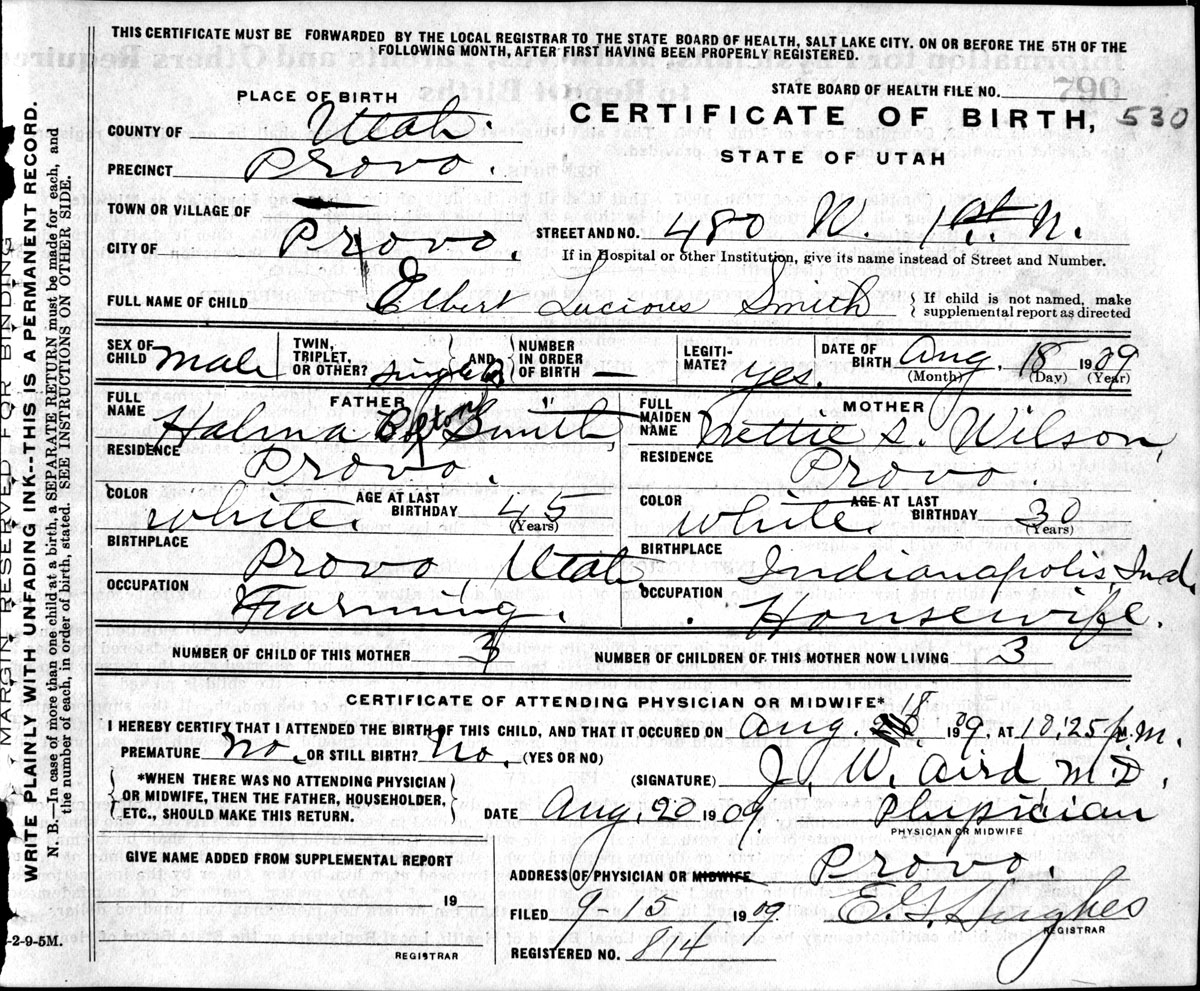 THIS CERTIFICATE MUST BE FORWARDED BY THE LOCAL REGISTRAR TO THE STATE BOARD OF HEALTH, SALT LAKE CITY. ON OR BEFORE THE 5TH OF THE
FOLLOWING MONTH, AFTER FIRST HAVING BEEN PROPERLY REGISTERED.
STATE BOARD OF HEALTH FILE NO.
PLACE OF BIRTH
CERTIFICATE OF BIRTH, 530
STATE OF UTAH
COUNTY OF Utah.
PRECINCT Provo.
TOWN OR VILLAGE OF
CITY OF Provo.
STREET AND NO. 480 N. 1st. N.
If in Hospital or other Institution, give its name instead of Street and Number.
FULL NAME OF CHILD Elbert Lucious Smith
If child is not named, make
supplemental report as directed
SEX OF
CHILD male
TWIN,
TRIPLET,
OR OTHER? single
AND
NUMBER
IN ORDER
OF BIRTH —
LEGITI-
MATE? yes.
DATE OF
BIRTH Aug. 18 1909
(Month) (Day) (Year)
FATHER
FULL
NAME Halma Smith
RESIDENCE Provo.
COLOR white.
AGE AT LAST
BIRTHDAY 45
(Years)
BIRTHPLACE Provo, Utah
OCCUPATION Farming.
MOTHER
FULL
MAIDEN
NAME Nettie S. Wilson,
RESIDENCE Provo.
COLOR white.
AGE AT LAST
BIRTHDAY 30
(Years)
BIRTHPLACE Indianapolis, Ind.
OCCUPATION Housewife.
NUMBER OF CHILD OF THIS MOTHER 3
NUMBER OF CHILDREN OF THIS MOTHER NOW LIVING 3
CERTIFICATE OF ATTENDING PHYSICIAN OR MIDWIFE*
I HEREBY CERTIFY THAT I ATTENDED THE BIRTH OF THIS CHILD, AND THAT IT OCCURED ON Aug. 18 1909. AT 10:25 p.m.
PREMATURE No. OR STILL BIRTH? No. (YES OR NO)
*WHEN THERE WAS NO ATTENDING PHYSICIAN
OR MIDWIFE, THEN THE FATHER, HOUSEHOLDER,
ETC., SHOULD MAKE THIS RETURN.
(SIGNATURE) J. W. Aird M.D.
DATE Aug. 20 1909. Physician
PHYSICIAN OR MIDWIFE
GIVE NAME ADDED FROM SUPPLEMENTAL REPORT
19
REGISTRAR
ADDRESS OF PHYSICIAN OR MIDWIFE Provo.
FILED 9 15 1909. E. G. Hughes
REGISTRAR
REGISTERED NO. 814
-2-9-5M.
MARGIN RESERVED FOR BINDING
WRITE PLAINLY WITH UNFADING INK--THIS IS A PERMANENT RECORD.
N. B.—In case of more than one child at a birth, a SEPARATE RETURN must be made for each, and
the number of each, in order of birth, stated. SEE INSTRUCTIONS ON OTHER SIDE.